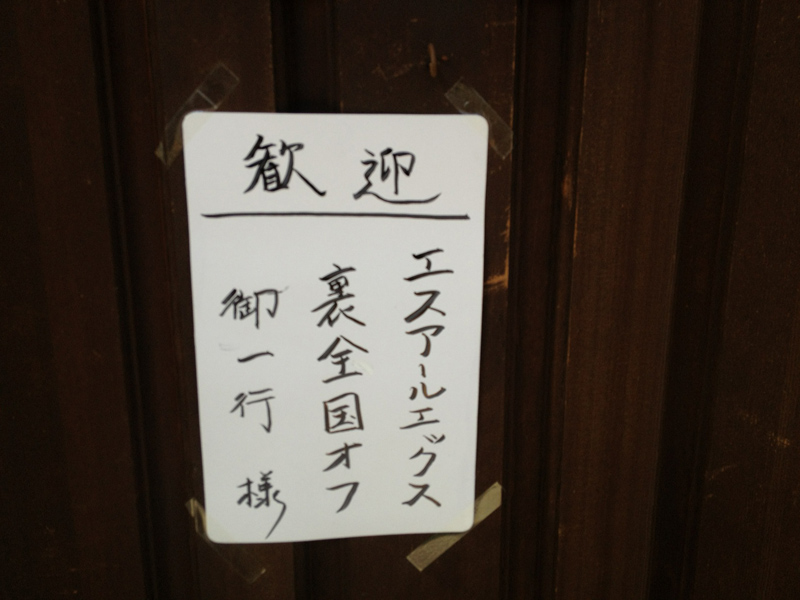 歓迎
エスアールエックス
裏全国オフ
御一行様